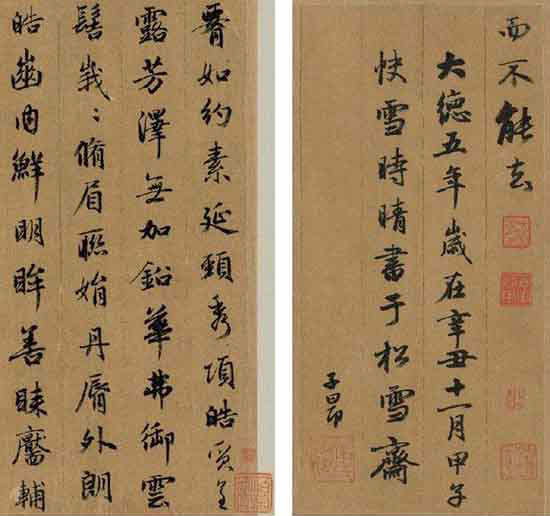 腰如約素延頸秀項皓質呈
露芳澤無加鉛華弗御雲
髻峩〻脩眉聯娟丹脣外朗
皓齒内鮮明眸善睞靨輔
而不能去
大德五年歲在辛丑十一月甲子
快雪時晴書于松雪齋
子昂